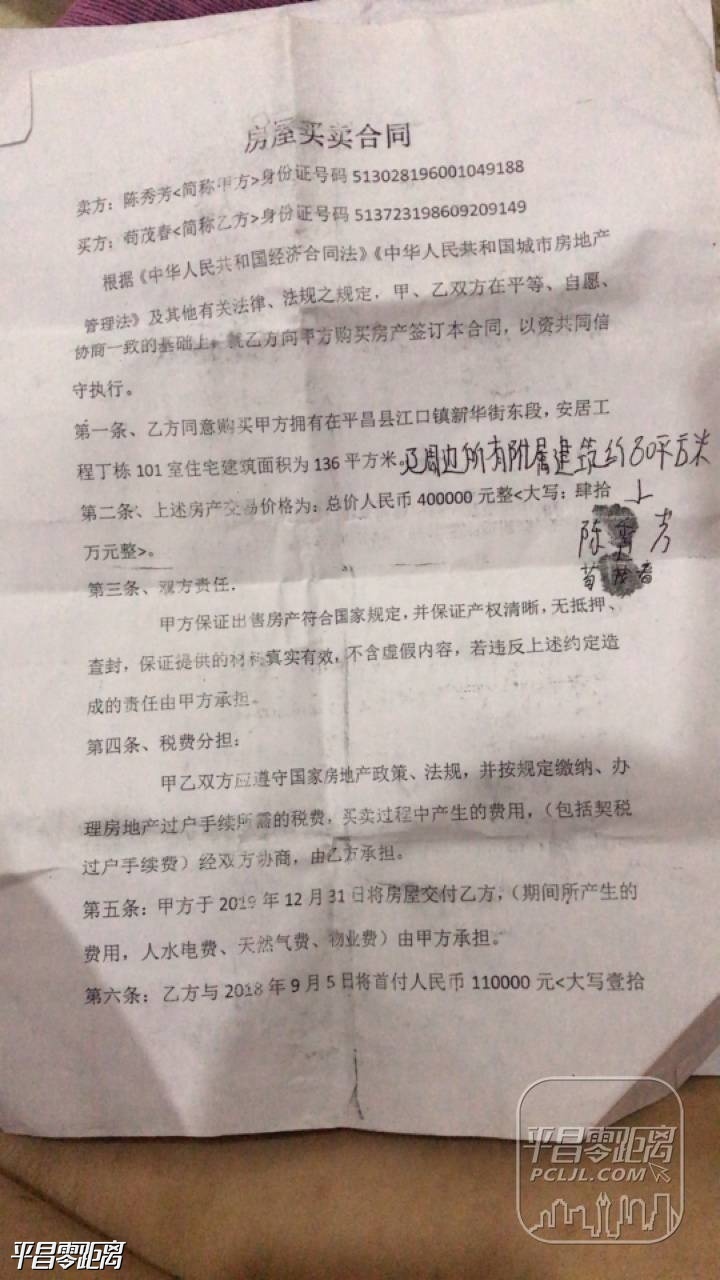 房屋买卖合同
卖方：陈秀芳<简称甲方>身份证号码 513028196001049188
买方：苟茂春<简称乙方>身份证号码 513723198609209149
根据《中华人民共和国经济合同法》《中华人民共和国城市房地产
管理法》及其他有关法律、法规之规定，甲、乙双方在平等、自愿、
协商一致的基础上，就乙方向甲方购买房产签订本合同，以资共同信
守执行。
第一条、乙方同意购买甲方拥有在平昌县江口镇新华街东段，安居工
程丁栋 101 室住宅建筑面积为 136 平方米。及周边所有附属建筑约80平方米
以上
第二条、上述房产交易价格为：总价人民币 400000 元整<大写：肆拾
万元整>。
陈秀芳
苟茂春
第三条、双方责任.
甲方保证出售房产符合国家规定，并保证产权清晰，无抵押、
查封，保证提供的材料真实有效，不含虚假内容，若违反上述约定造
成的责任由甲方承担。
第四条、税费分担：
甲乙双方应遵守国家房地产政策、法规，并按规定缴纳、办
理房地产过户手续所需的税费，买卖过程中产生的费用，（包括契税
过户手续费）经双方协商，由乙方承担。
第五条：甲方于 2019 年 12 月 31 日将房屋交付乙方，（期间所产生的
费用，人水电费、天然气费、物业费）由甲方承担。
第六条：乙方与 2018 年 9 月 5 日将首付人民币 110000 元<大写壹拾
平昌零距离
PCLJL.COM
平昌零距离